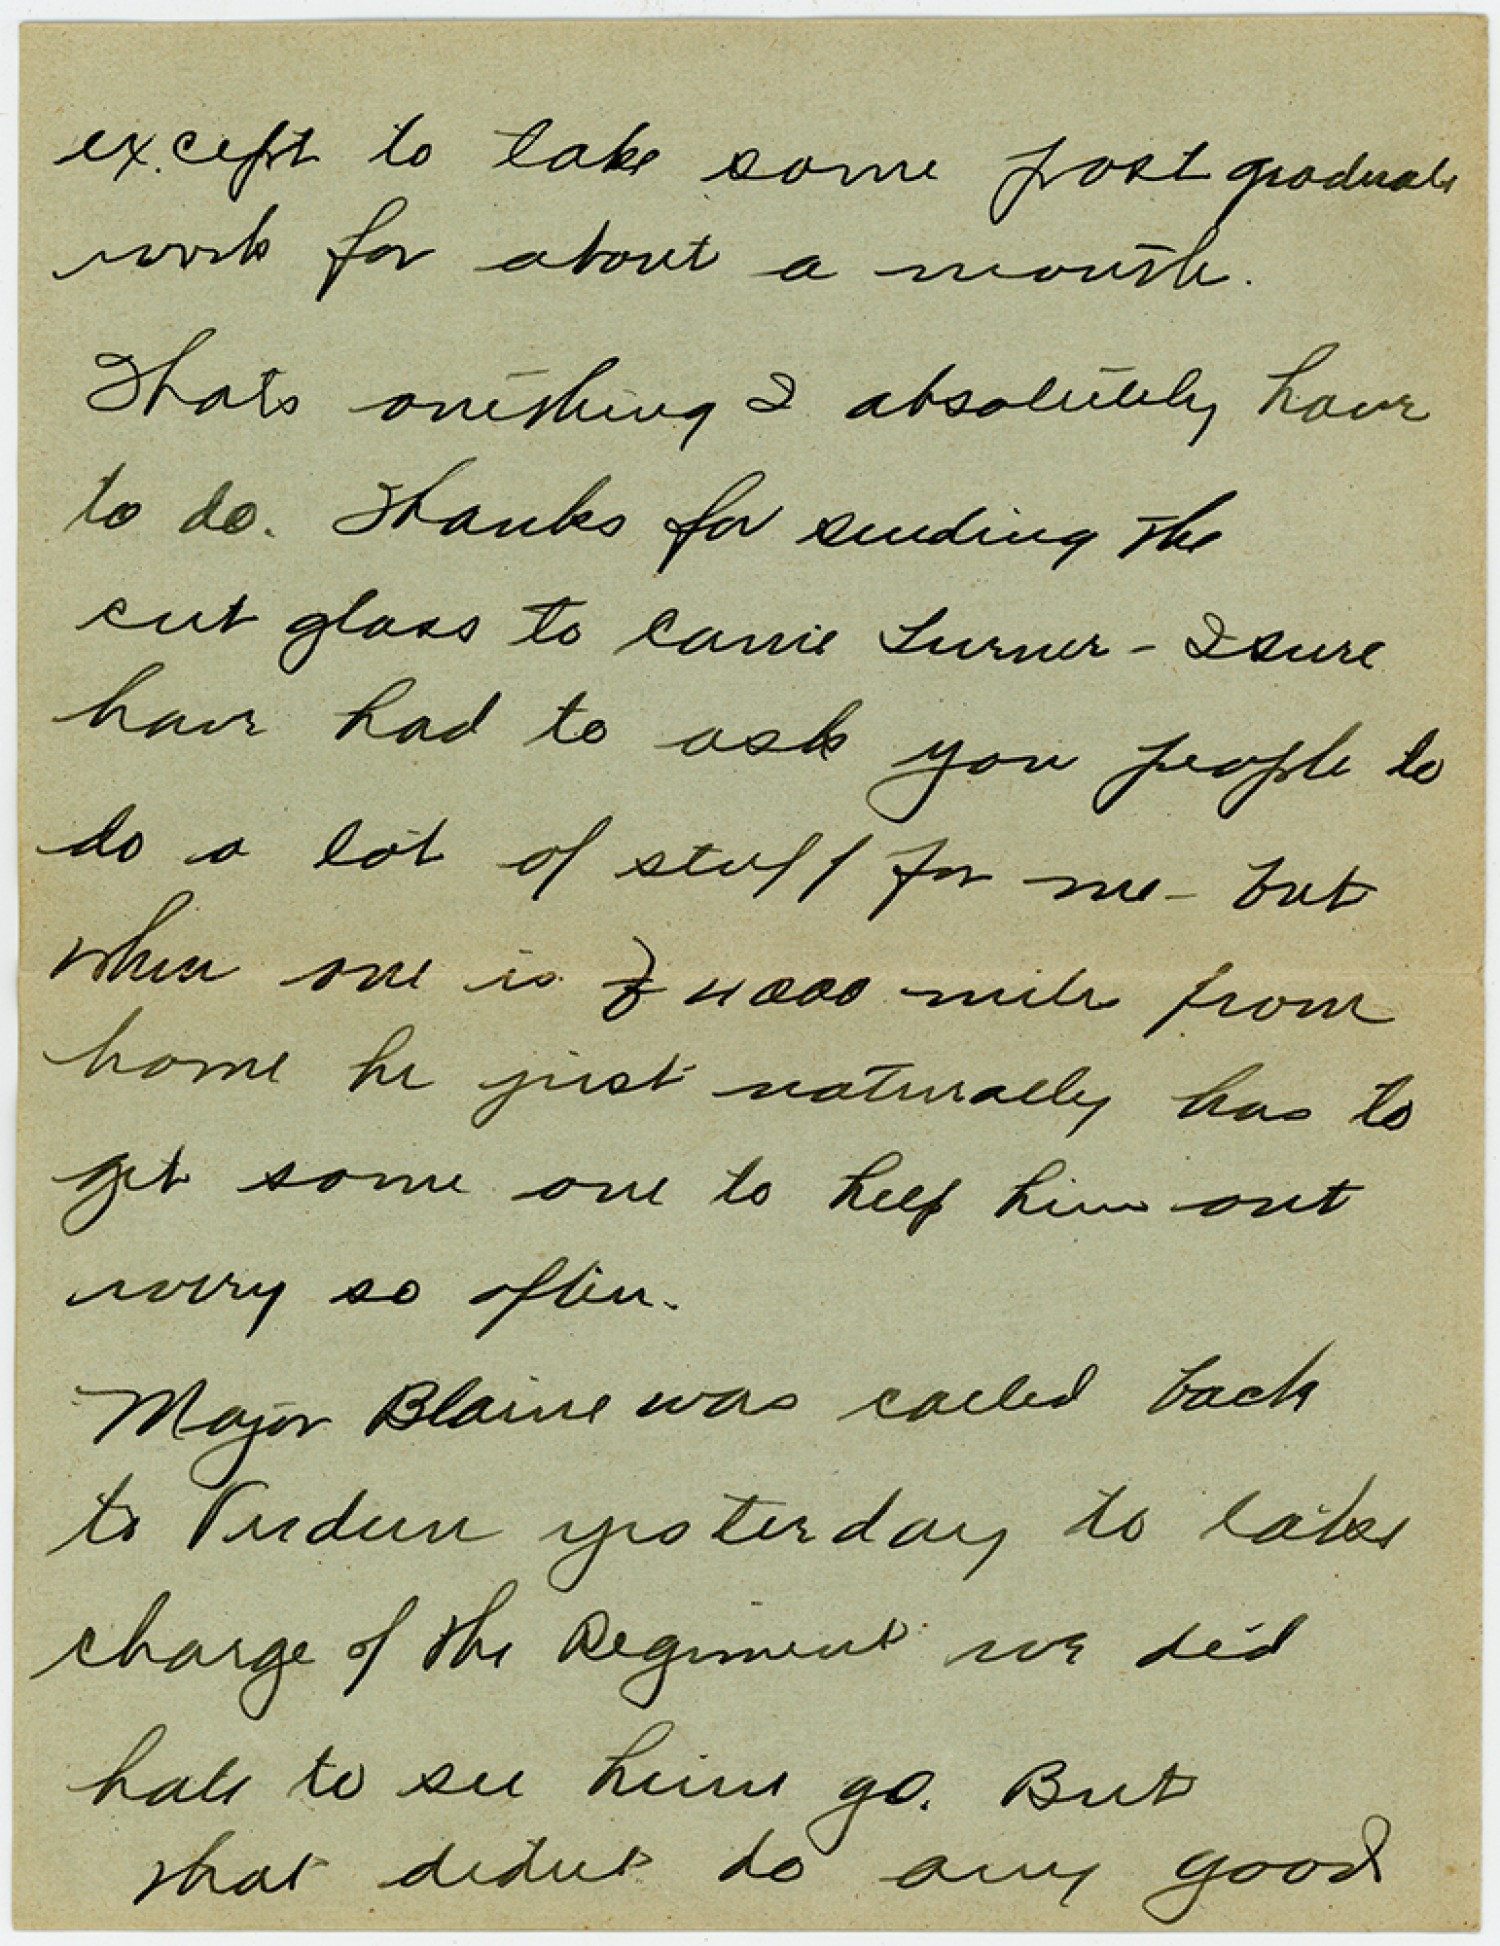 except to take some post graduate
work for about a month.
Thats onething I absolutely have
to do. Thanks for sending the
cut glass to Carrie Turner - I sure
have had to ask you people to
do a lot of stuff for me - but
when one is 4000 miles from
home he just naturally has to
get some one to help him out
every so often.
Major Blaine was called back
to Verdun yesterday to take
charge of the Regiment we did
hate to see him go. But
that didnt do any good